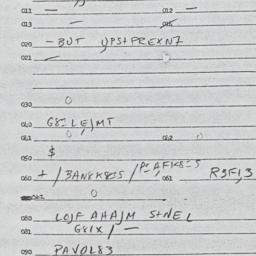 011 — 012 —
013 — 015
020 -BUT YPS+PREXNZ
021 —
030 O
040 G8=LE,MT
041 O 042 O
050 $
060 + /BANK8=S /P=AFIK8=S 061 R3FI,3
O
080 LO,F AHA,M S+NEL
081 G81X / —
090 PAVOL83